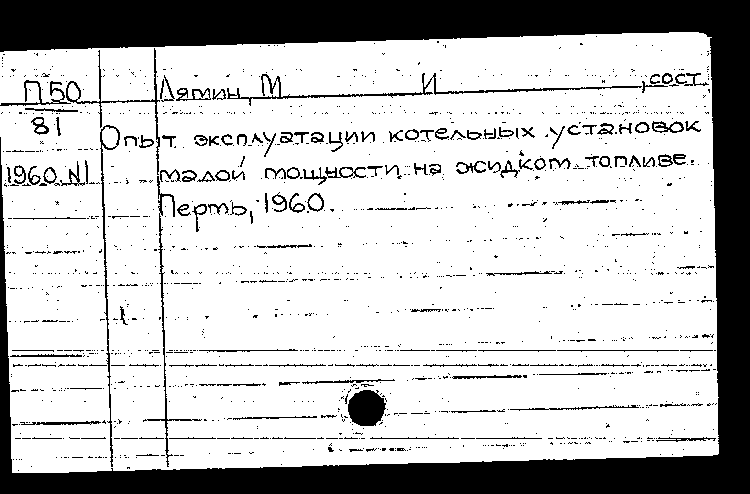 П50 Лямин, М И , сост.
81 Опыт эксплуатации котельных установок
1960.N1 малой мощности на жидком топливе.
Пермь, 1960.